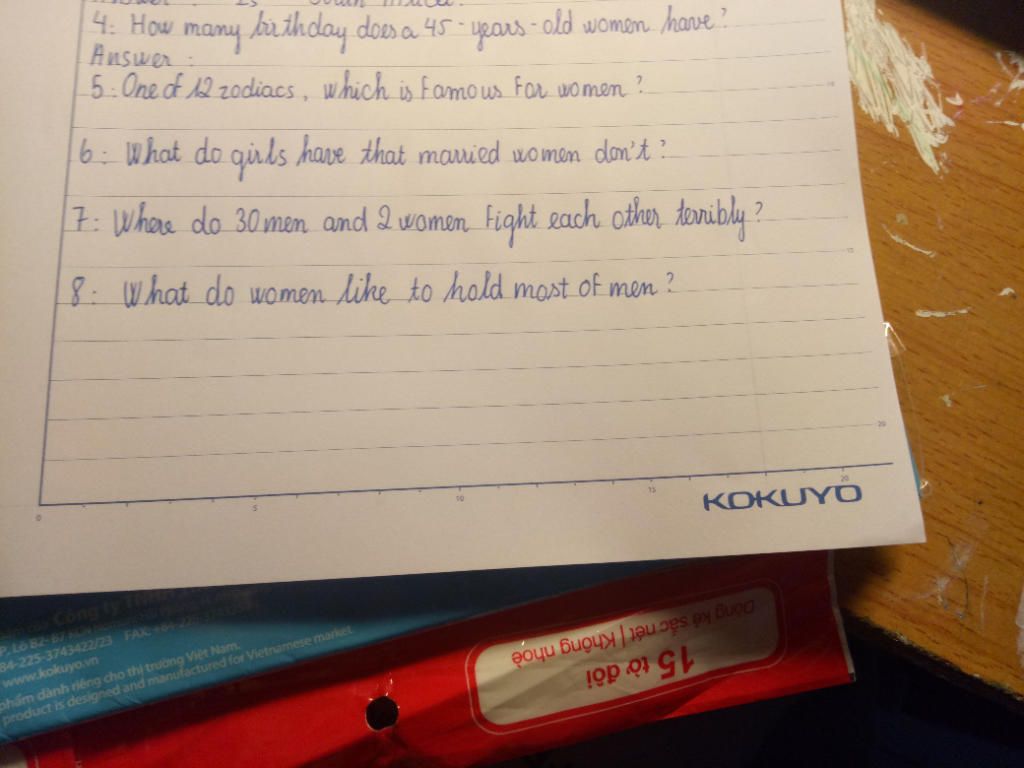 4: How many birthday does a 45-years-old women have?
Answer:
5: One of 12 zodiacs, which is famous for women?
6: What do girls have that married women don't?
7: Where do 30 men and 2 women fight each other terribly?
8: What do women like to hold most of men?
0 5 10 15 20
10
15
20
KOKUYO
Công ty
P, Lô B2-B7
84-225-3743422/23 FAX: +84-225-
www.kokuyo.vn
phẩm dành riêng cho thị trường Việt Nam.
product is designed and manufactured for Vietnamese market
15 tờ đôi
Dòng kẻ sắc nét | Không nhoè